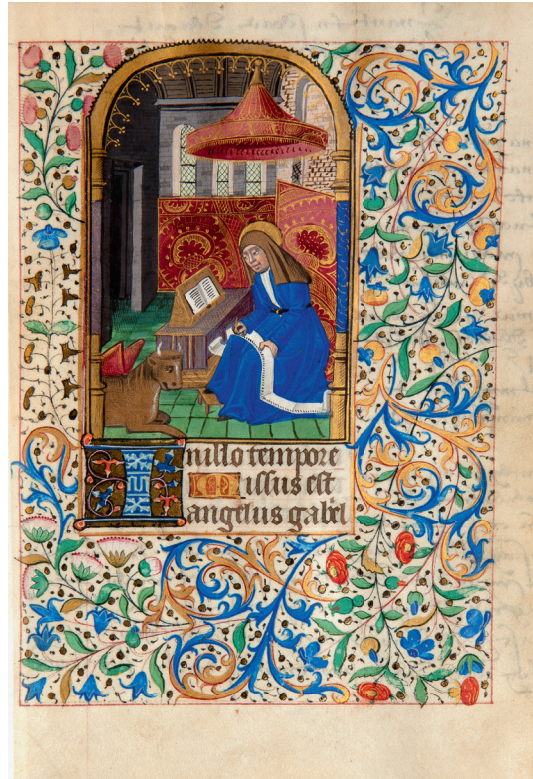 Inillo tempore
Missus est
angelus gab̅el